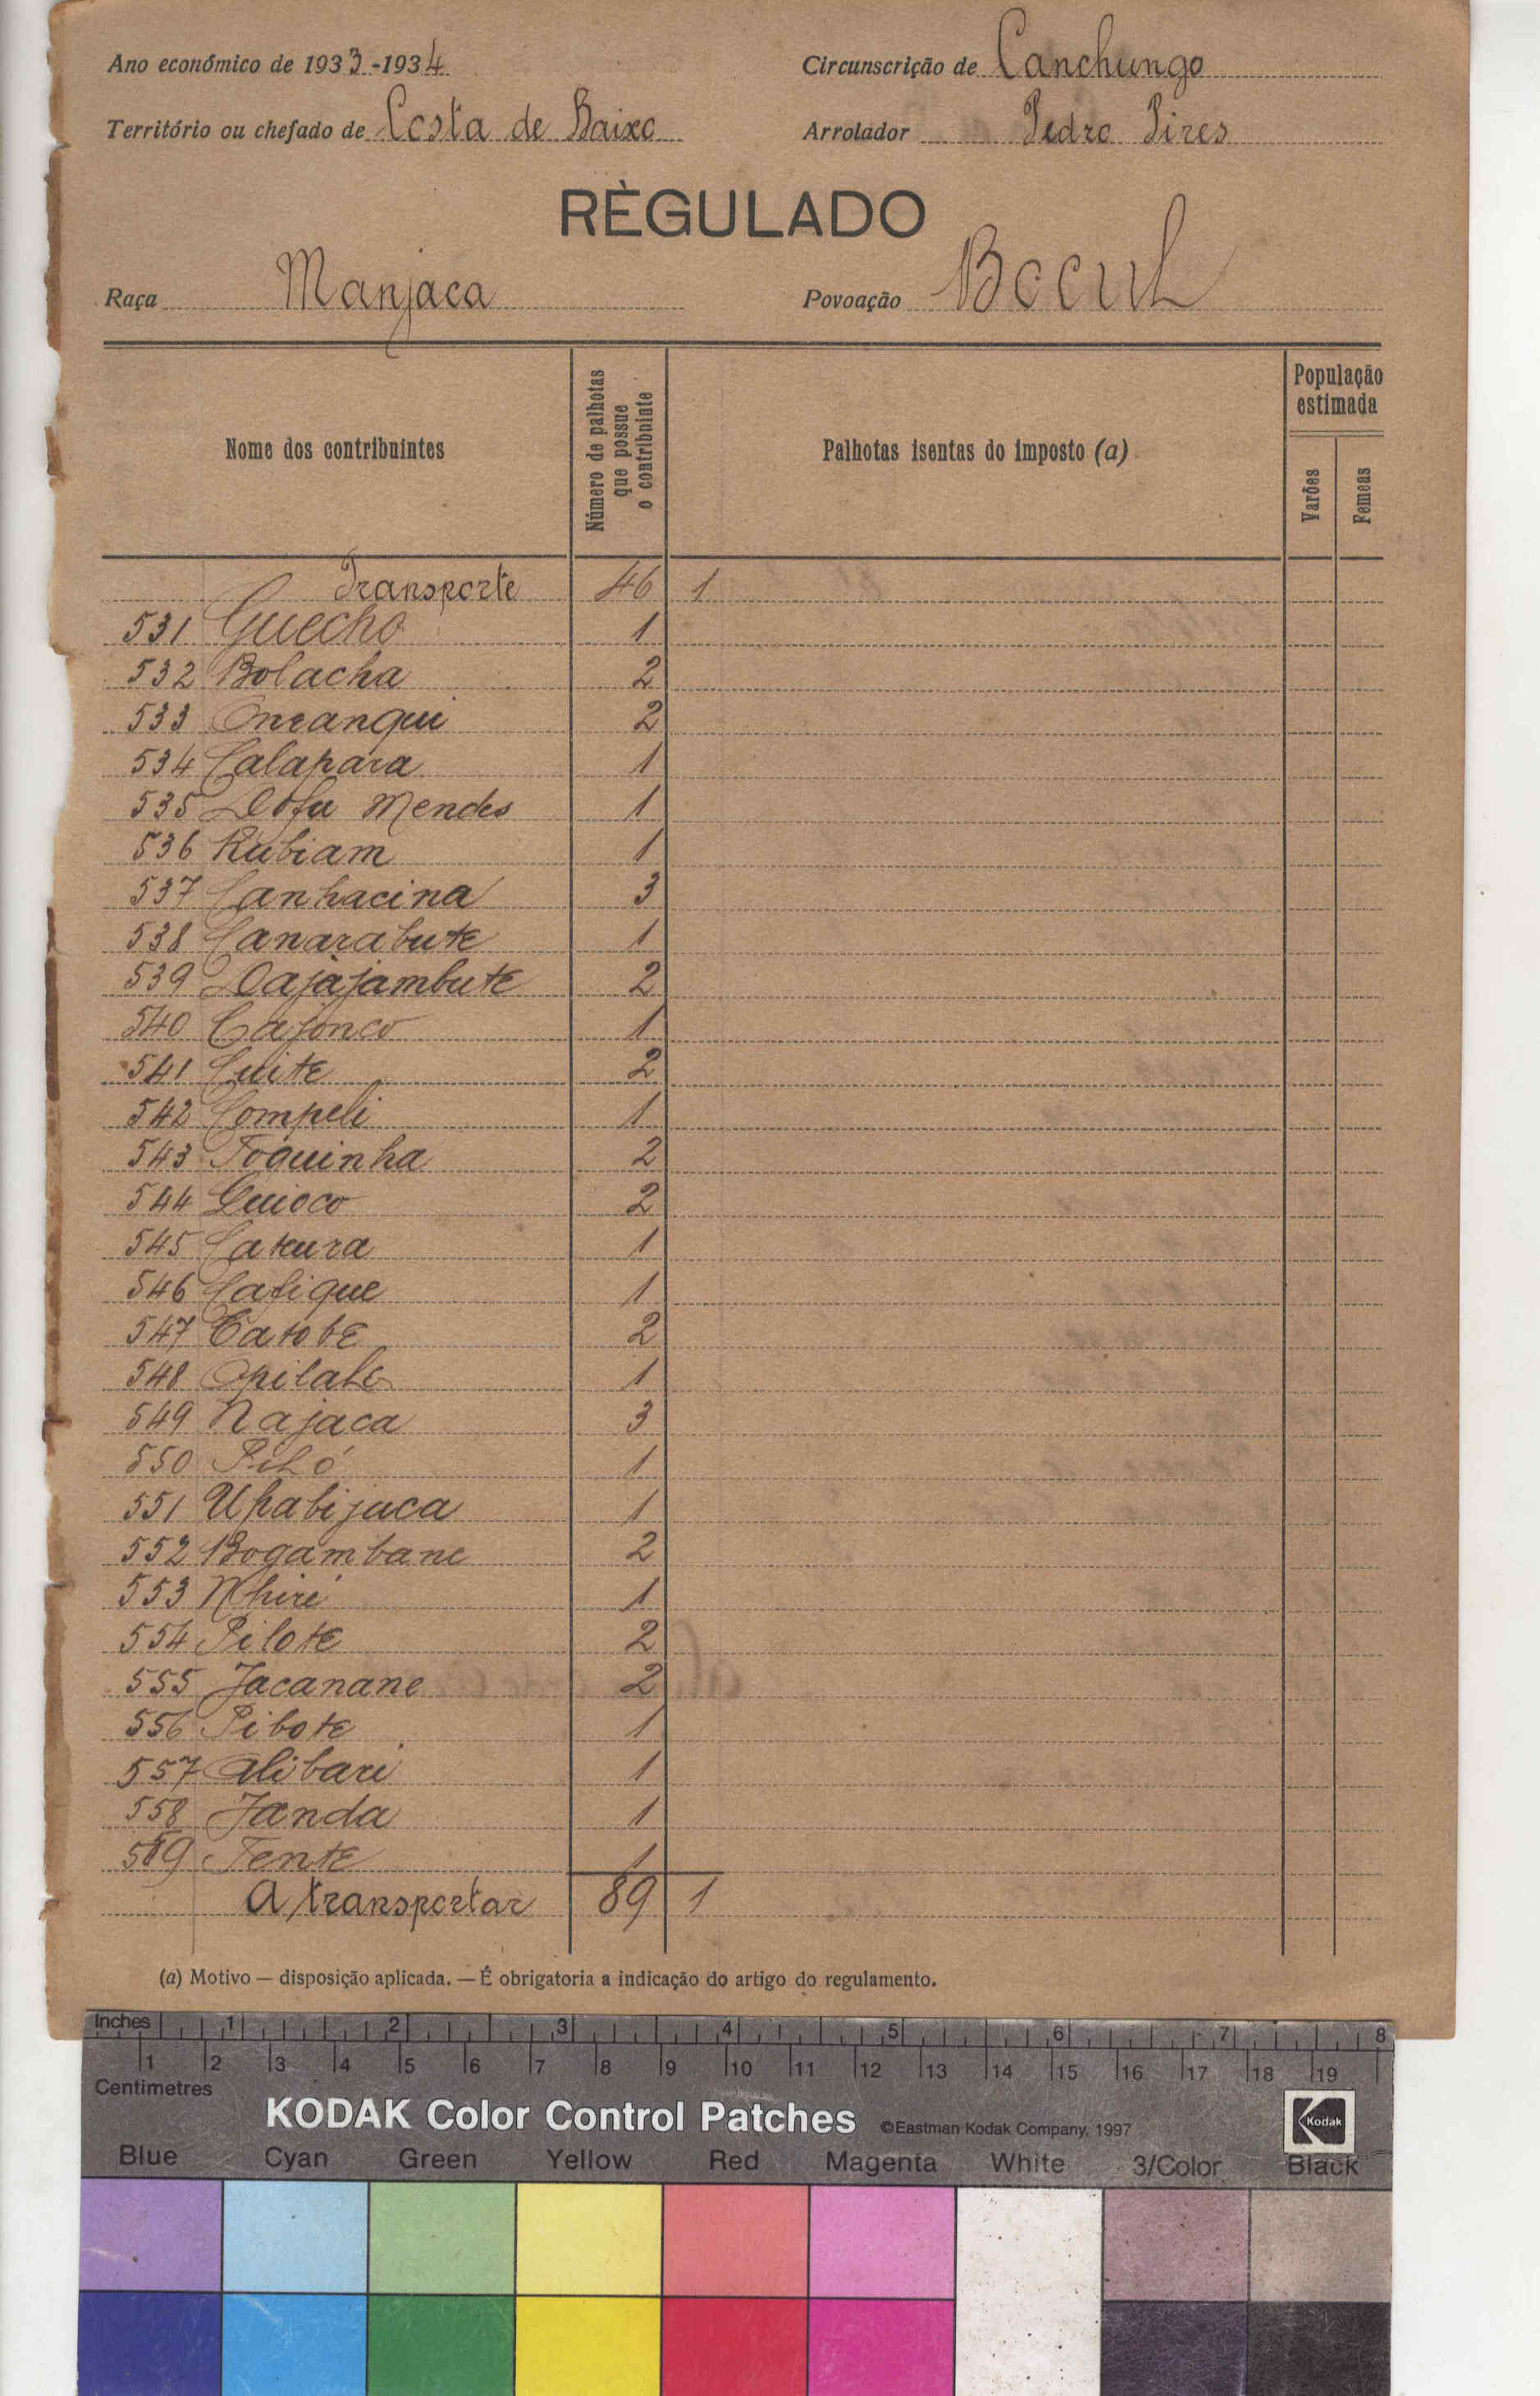 Ano económico de 1933-1934
Circunscrição de Canchungo
Território ou chefado de Costa de Baixo
Arrolador Pedro Pires
RÈGULADO
Raça Manjaca
Povoação Bocul
Nome dos contribuintes
Número de palhotas que possue o contribuinte
Palhotas isentas do imposto (a)
População estimada
Varões
Femeas
Transporte 46 1
531 Guecho 1
532 Bolacha 2
533 Oncanqui 2
534 Calapara 1
535 Dofa Mendes 1
536 Rubiam 1
537 Canhacina 3
538 Canarabute 1
539 Dajàjambute 2
540 Cajonco 1
541 Cuite 2
542 Compeli 1
543 Toquinha 2
544 Guioco 2
545 Catura 1
546 Catique 1
547 Catobe 2
548 1
549 Najaca 3
550 1
551 Upabijaca 1
552 Bogambane 2
553 Nhiri 1
554 Pilote 2
555 Jacanane 2
556 Pibote 1
557 Alibari 1
558 Janda 1
559 Tente 1
A transportar 89 1
(a) Motivo — disposição aplicada. — É obrigatoria a indicação do artigo do regulamento.
Inches 1 2 3 4 5 6 7 8
1 2 3 4 5 6 7 8 9 10 11 12 13 14 15 16 17 18 19
Centimetres
KODAK Color Control Patches ©Eastman Kodak Company, 1997 Kodak
Blue Cyan Green Yellow Red Magenta White 3/Color Black